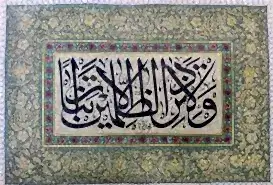 ولا تزد الظالمين الا تبارا